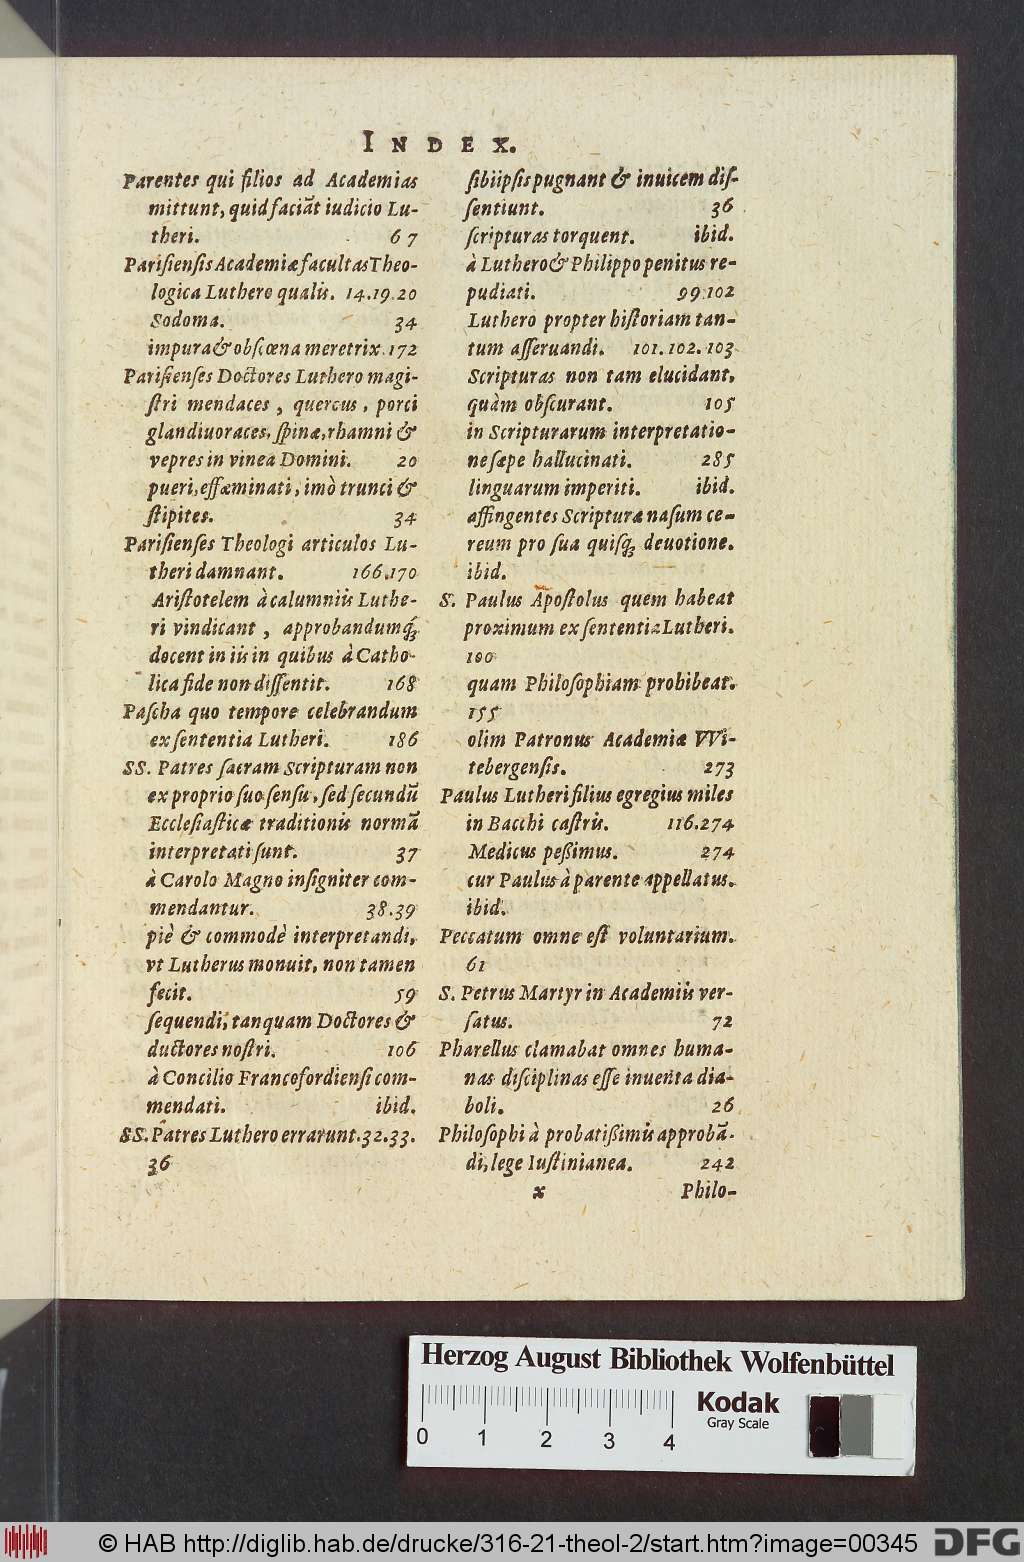 INDEX.
Parentes qui filios ad Academias
mittunt, quid faciāt iudicio Lu-
theri. 67
Parisiensis Academiæ facultas Theo-
logica Luthero qualis. 14.19.20
Sodoma. 34
impura & obscœna meretrix. 172
Parisienses Doctores Luthero magi-
stri mendaces, quercus, porci
glandiuoraces, spinæ, rhamni &
vepres in vinea Domini. 20
pueri, effœminati, imò trunci &
stipites. 34
Parisienses Theologi articulos Lu-
theri damnant. 166.170
Aristotelem à calumniis Luthe-
ri vindicant, approbandumq́;
docent in iis in quibus à Catho-
lica fide non dissentit. 168
Pascha quo tempore celebrandum
ex sententia Lutheri. 186
SS. Patres sacram Scripturam non
ex proprio suo sensu, sed secundū
Ecclesiasticæ traditionis normā
interpretati sunt. 37
à Carolo Magno insigniter com-
mendantur. 38.39
piè & commodè interpretandi,
vt Lutherus monuit, non tamen
fecit. 59
sequendi, tanquam Doctores &
ductores nostri. 106
à Concilio Francofordiensi com-
mendati. ibid.
SS. Patres Luthero errarunt. 32.33.
36
sibiipsis pugnant & inuicem dis-
sentiunt. 36
scripturas torquent. ibid.
à Luthero & Philippo penitus re-
pudiati. 99.102
Luthero propter historiam tan-
tum asseruandi. 101.102.103
Scripturas non tam elucidant,
quàm obscurant. 105
in Scripturarum interpretatio-
ne sæpe hallucinati. 285
linguarum imperiti. ibid.
affingentes Scripturæ nasum ce-
reum pro sua quisq; deuotione.
ibid.
S. Paulus Apostolus quem habeat
proximum ex sententia Lutheri.
100
quam Philosophiam prohibeat.
155
olim Patronus Academiæ VVi-
tebergensis. 273
Paulus Lutheri filius egregius miles
in Bacchi castris. 116.274
Medicus peßimus. 274
cur Paulus à parente appellatus.
ibid.
Peccatum omne est voluntarium.
61
S. Petrus Martyr in Academiis ver-
satus. 72
Pharellus clamabat omnes huma-
nas disciplinas esse inuenta dia-
boli. 26
Philosophi à probatißimis approbā-
di, lege Iustinianea. 242
x Philo-
Herzog August Bibliothek Wolfenbüttel
Kodak
Gray Scale
0 1 2 3 4
© HAB http://diglib.hab.de/drucke/316-21-theol-2/start.htm?image=00345
DFG